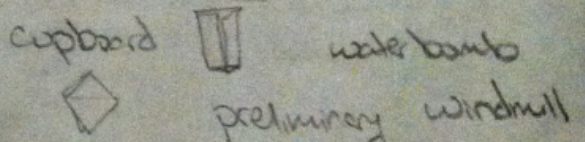 cupboard waterbomb
preliminary windmill